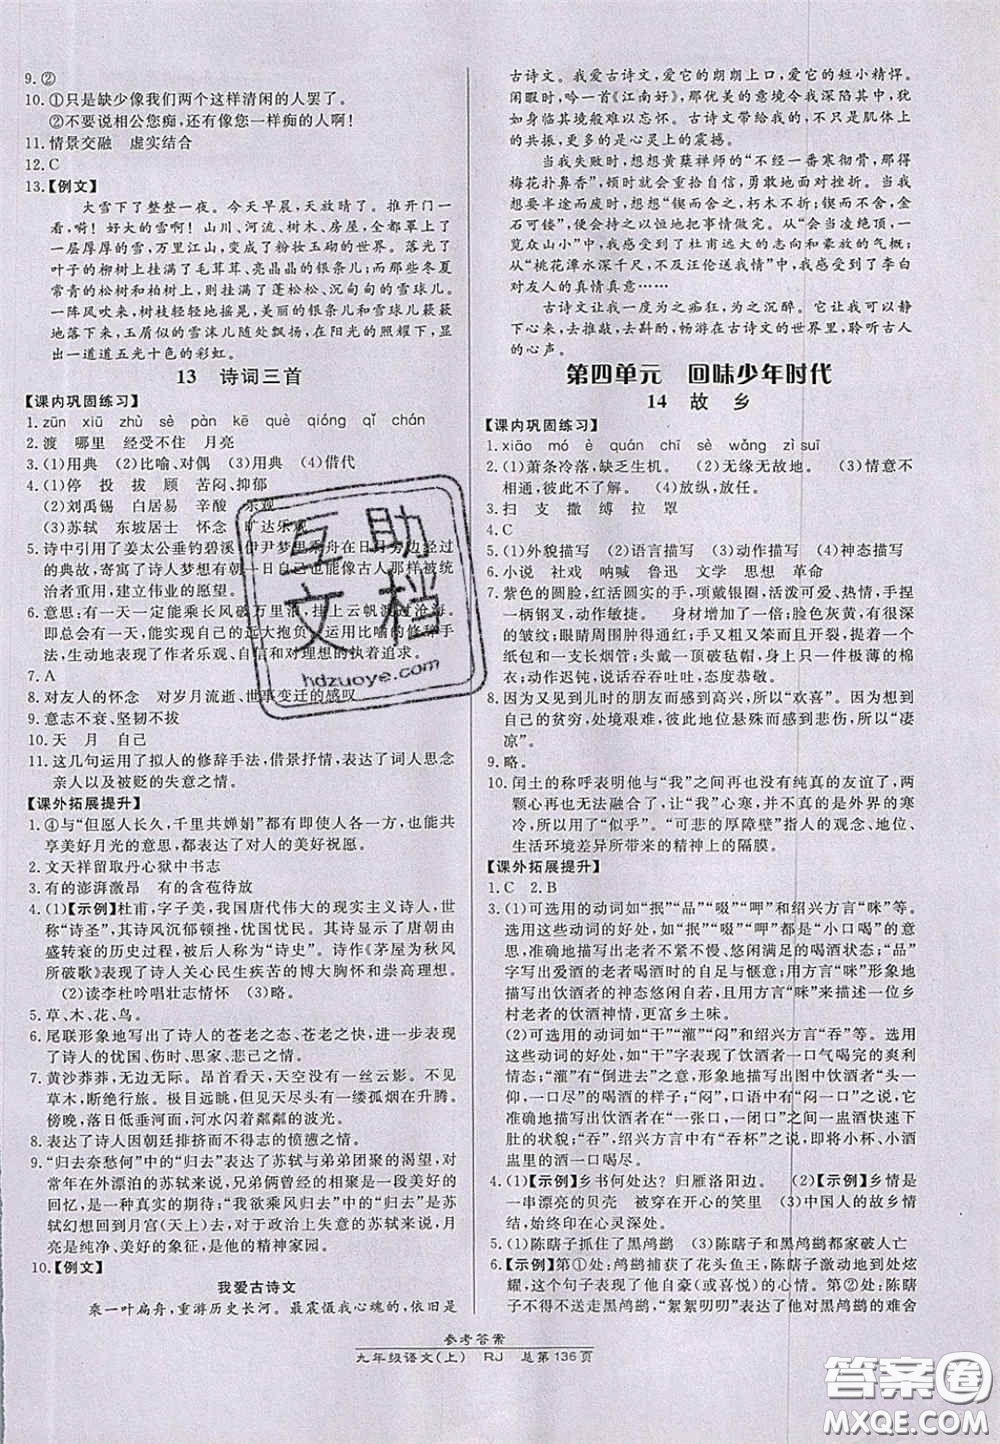 9. ②
10. ①只是缺少像我们两个这样清闲的人罢了。
②不要说相公您痴,还有像您一样痴的人啊!
11. 情景交融 虚实结合
12. C
13.【例文】
大雪下了整整一夜。今天早晨,天放晴了。推开门一
看,嗬!好大的雪啊!山川、河流、树木、房屋,全都罩上了
一层厚厚的雪,万里江山,变成了粉妆玉砌的世界。落光了
叶子的柳树上挂满了毛茸茸、亮晶晶的银条儿;而那些冬夏
常青的松树和柏树上,则挂满了蓬松松、沉甸甸的雪球儿。
一阵风吹来,树枝轻轻地摇晃,美丽的银条儿和雪球儿簌簌
地落下来,玉屑似的雪沫儿随处飘扬,在阳光的照耀下,显
出一道道五光十色的彩虹。
13 诗词三首
【课内巩固练习】
1. zūn xiū zhù sè pàn kē què qióng qǐ chán
2. 渡 哪里 经受不住 月亮
3. (1)用典 (2)比喻、对偶 (3)用典 (4)借代
4. (1)停 投 拔 顾 苦闷、抑郁
(2)刘禹锡 白居易 辛酸 乐观
(3)苏轼 东坡居士 怀念 旷达乐观
5. 诗中引用了姜太公垂钓碧溪、伊尹梦里乘舟在日月旁边经过
的典故,寄寓了诗人梦想有朝一日自己也能像古人那样被统
治者重用,建立伟业的愿望。
6. 意思:有一天一定能乘长风破万里浪,挂上云帆渡过沧海。
即总会有一天,实现自己的远大抱负。运用比喻的修辞手
法,生动地表现了作者乐观、自信和对理想的执着追求。
7. A
8. 对友人的怀念 对岁月流逝、世事变迁的感叹
9. 意志不衰、坚韧不拔
10. 天 月 自己
11. 这几句运用了拟人的修辞手法,借景抒情,表达了词人思念
亲人以及被贬的失意之情。
【课外拓展提升】
1. ④与“但愿人长久,千里共婵娟”都有即使人各一方,也能共
享美好月光的意思,都有互致慰问的美好祝愿。
2. 文天祥留取丹心狱中书志
3. 有的澎湃激昂 有的含苞待放
4. (1)【示例】杜甫,字子美,我国唐代伟大的现实主义诗人,世
称“诗圣”,其诗风沉郁顿挫,忧国忧民。其诗显示了唐朝由
盛转衰的历史过程,被后人称为“诗史”。诗作《茅屋为秋风
所破歌》表现了诗人关心民生疾苦的博大胸怀和崇高理想。
(2)读李杜吟唱壮志情怀 (3)略。
5. 草、木、花、鸟。
6. 尾联形象地写出了诗人的苍老之态、苍老之形,含蓄地表达
了诗人的忧国、伤时、思家、悲己之情。
7. 黄沙莽莽,无边无际。昂首看天,天空没有一丝云影。不见
草木,断绝行旅。极目远眺,但见天尽头有一缕孤烟在升腾。
傍晚,落日低垂河面,河水闪着粼粼的波光。
8. 表达了诗人因朝廷排挤而不得志的愤懑之情。
9. “归去奈愁何”中的“归去”表达了苏轼与弟弟团聚的渴望,对
常年在外漂泊的苏轼来说,兄弟俩曾经的相聚是一种美好的
回忆,也是一种真实的期待;“我欲乘风归去”中的“归去”是苏
轼幻想回归到月宫(天上)中去,对于政治上失意的苏轼来说,月
亮是纯净、美好的象征,是他的精神家园。
10.【例文】
我爱古诗文
乘一叶扁舟,重游历史长河。最震慑我心魂的,依旧是
古诗文。我爱古诗文,爱它的朗朗上口,爱它的短小精悍。
闲暇时,吟一首《江南好》,那优美的意境令我深陷其中,
犹如身临其境般难以忘怀。古诗文带给我的,不只是思想上
的共振,更多的是心灵上的震撼。
当我失败时,想想黄蘖禅师的“不经一番寒彻骨,那得
梅花扑鼻香”,我就会重拾自信,勇敢地面对挫折。当我想
要半途而废时,想想“锲而舍之,朽木不折;锲而不舍,金
石可镂”,便会持之以恒地把事情做完。从“会当凌绝顶,一
览众山小”中,我感受到了杜甫远大的志向和豪放的气概;
从“桃花潭水深千尺,不及汪伦送我情”中,我感受到了李白
对友人的真情真意……
古诗文让我一度为之痴狂,为之沉醉。它让我可以静
下心来,去推敲,去斟酌,畅游在古诗文的世界里,聆听古人
的心声。
第四单元 回味少年时代
14 故乡
【课内巩固练习】
1. xiāo mó è quán chī sè wǎng zì suī
2. (1)萧条冷落,缺乏生机。 (2)无缘无故地。 (3)情意不
相通,彼此不了解。 (4)放纵,放任。
3. 扫 支 撒 缚 拉 罩
4. C
5. (1)外貌描写 (2)语言描写 (3)动作描写 (4)神态描写
6. 小说 社戏 呐喊 鲁迅 文学 思想 革命
7. 紫色的圆脸,红活圆实的手,项戴银圈,活泼可爱、热情,手捏
一柄钢叉,动作敏捷。 身材增加了一倍;脸色灰黄,有很深
的皱纹;眼睛周围肿得通红;手又粗又笨而且开裂,提着一个
纸包和一支长烟管;头戴一顶破毡帽,身穿一件极薄的棉
衣;动作迟钝,说话吞吞吐吐,态度恭敬。
8. 因为又见到儿时的朋友而感到高兴,所以“欢喜”。但又想到
自己的贫负,处境艰难,彼此地位悬殊而感到悲伤,所以“凄
凉”。
9. 略。
10. 闰土的称呼表明他与“我”之间再也没有纯真的友谊了,两
颗心再也无法融合了,让“我”心寒,并不真的是外界的寒
冷,所以用了“似乎”。“可悲的厚障壁”指人的观念、地位、
生活环境差异所带来的精神上的隔膜。
【课外拓展提升】
1. C 2. B
3. (1)可选用的动词如“抿”“品”“啜”“呷”和绍兴方言“咪”等。
选用这些动词的好处,如“抿”“啜”“呷”表现了“小口喝”的意
思,准确地描写出老者不紧不慢、悠闲满足的喝酒状态;“品”
字写出了饮酒的老者喝酒时的自足与惬意;用方言“咪”形象地
描写出了饮酒者的神态悠然自得,更能够生动地描写出乡
村老者的饮酒神情,更富乡土味。
(2)可选用的动词如“干”“灌”“闷”和绍兴方言“吞”等。选用
这些动词的好处,如“干”字表现了饮酒者一口气喝完的爽利
情态;“灌”有“倒进去”的意思,形象地描写出图中饮酒者“头一
仰,一口尽”的喝酒的样子;“闷”,口语中有“一口尽”的意思,
形象地描写出了饮酒者在“一张口,一闭口”之间一盅酒快速下
肚的情状;“吞”,绍兴方言中有“吞杯”之说,即将小杯、小酒
盅里的酒一口喝尽。
4. (1)【示例】乡书何处达?归雁洛阳边。 (2)【示例】乡情是
一串漂亮的贝壳 被穿在开心的笑里 (3)中国人的故乡情
结,始终印在心灵深处。
5. (1)陈瞎子抓住了黑鸬鹚 (3)陈瞎子和黑鸬鹚都家破人亡
6. 【示例】第①处:鸬鹚捕获了花头鱼王,陈瞎子激动地到处炫
耀,这个句子表现了他自豪(或喜悦)的心情。 第②处:陈瞎
子不得不送走黑鸬鹚,“絮絮叨叨”表达了他对黑鸬鹚的难舍
参考答案
九年级语文(上) RJ 总第136页
互助文档
hdzuoye.com
答案圈
MXQE.COM